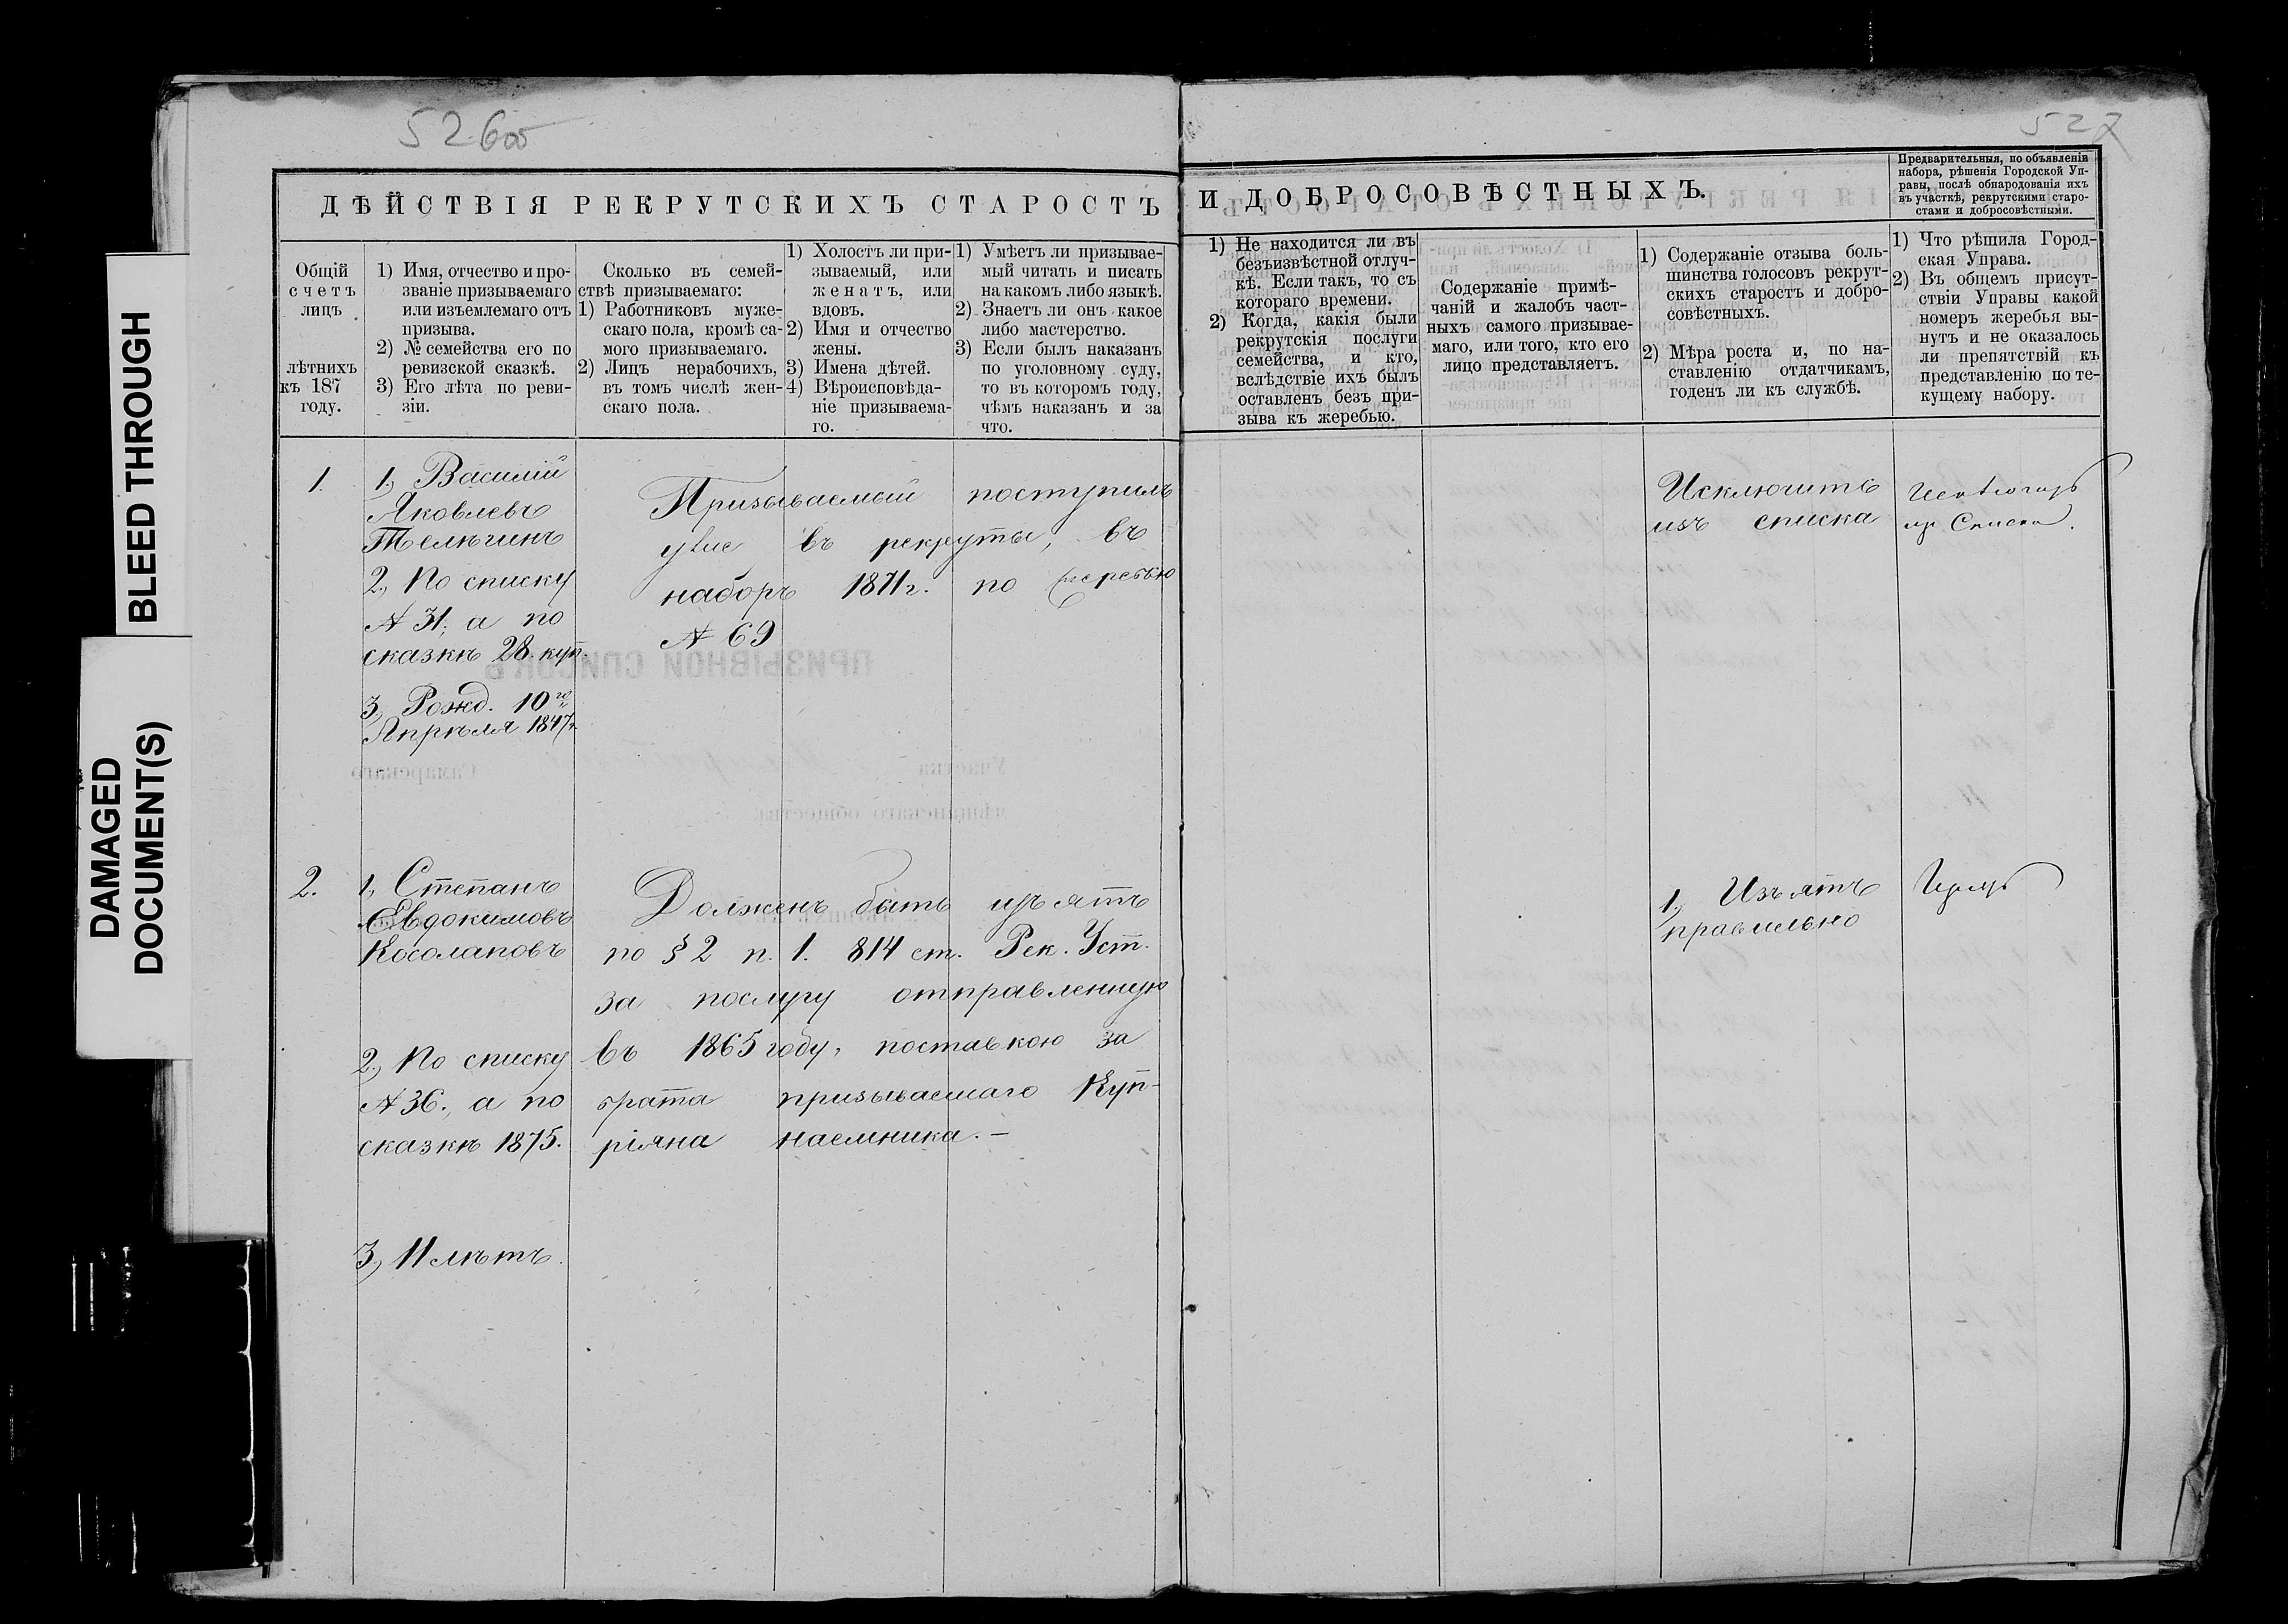 BLEED THROUGH
DAMAGED
DOCUMENT(S)
526об
527
ДѢЙСТВІЯ РЕКРУТСКИХЪ СТАРОСТЪ И ДОБРОСОВѢСТНЫХЪ.
Предварительныя, по объявленіи
набора, рѣшенія Городской Уп-
равы, послѣ обнародованія ихъ
въ участкѣ, рекрутскими старо-
стами и добросовѣстными.
Общій
счетъ
лицъ
лѣтнихъ
къ 187
году.
1) Имя, отчество и про-
званіе призываемаго
или изъемлемаго отъ
призыва.
2) № семейства его по
ревизской сказкѣ.
3) Его лѣта по реви-
зіи.
Сколько въ семей-
ствѣ призываемаго:
1) Работниковъ муже-
скаго пола, кромѣ са-
мого призываемаго.
2) Лицъ нерабочихъ,
въ томъ числѣ жен-
скаго пола.
1) Холостъ ли при-
зываемый, или
женатъ, или
вдовъ.
2) Имя и отчество
жены.
3) Имена дѣтей.
4) Вѣроисповѣда-
ніе призываема-
го.
1) Умѣетъ ли призывае-
мый читать и писать
на какомъ либо языкѣ.
2) Знаетъ ли онъ какое
либо мастерство.
3) Если былъ наказанъ
по уголовному суду,
то въ которомъ году,
чѣмъ наказанъ и за
что.
1) Не находится ли въ
безъизвѣстной отлуч-
кѣ. Если такъ, то съ
котораго времени.
2) Когда, какія были
рекрутскія послуги
семейства, и кто,
вслѣдствіе ихъ былъ
оставленъ безъ при-
зыва къ жеребью.
Содержаніе примѣ-
чаній и жалобъ част-
ныхъ самого призывае-
маго, или того, кто его
лицо представляетъ.
1) Содержаніе отзыва боль-
шинства голосовъ рекрут-
скихъ старостъ и добро-
совѣстныхъ.
2) Мѣра роста и, по на-
ставленію отдатчикамъ,
годенъ ли къ службѣ.
1) Что рѣшила Город-
ская Управа.
2) Въ общемъ присут-
ствіи Управы какой
номеръ жеребья вы-
нутъ и не оказалось
ли препятствій къ
представленію по те-
кущему набору.
1.
1., Василій
Яковлевъ
Телѣгинъ
2., По списку
№ 31; а по
сказкѣ 28. куп.
3, Рожд. 10го
Апрѣля 1847г.
Призываемый поступилъ
уже въ рекруты, въ
наборъ 1871г. по жеребью
№ 69
Исключить
изъ списка
Исключить
изъ Списка.
2.
1, Степанъ
Евдокимовъ
Косолаповъ
2., По списку
№ 36., а по
сказкѣ 1875.
3, 11 лѣтъ.
Долженъ быть изъятъ
по § 2 п. 1. 814 ст. Рек. Уст.
за послугу отправленную
въ 1865 году, поставкою за
брата призываемаго Куп-
ріяна наемника. —
1, Изъятъ
правильно